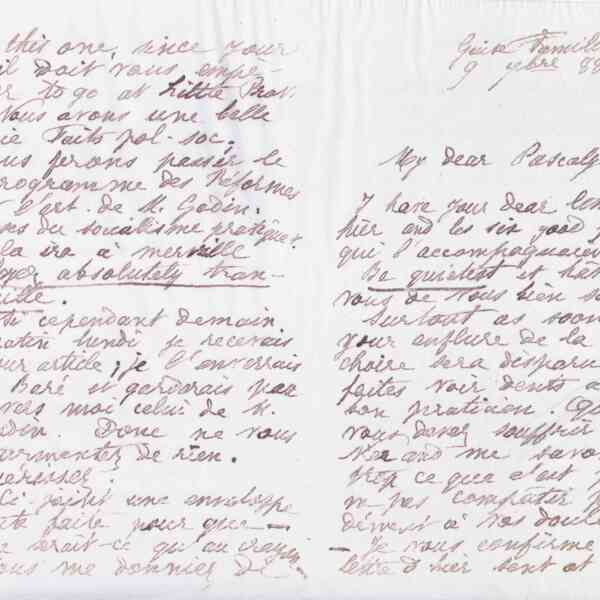 Guise Famili
9 9bre 88
My dear Pascaly
I have your dear
hier and les six good
qui l'accompagnaien
Be quietest et
vous de vous bien
Surtout as soon
your enflure de la
choire sera disparu
faites voir dents a
bon praticien.
vous devez souffrir
and me
ce que c'est
pas compatir
à vos doule
Je vous confirme
lettre d'hier sent at
this one, since your
il doit vous empê-
to go at little
Vous avons une belle
ie Faits pol-soc.
us ferons passer le
rogramme des Réformes
l'art. de M. Godin.
ns du socialisme pratique.
la ira à merveille
oyez absolutely tran-
uille.
Si cependant demain
matin lundi je recevais
our article, je l'enverrais
Baré et garderais pax
vers moi celui de M.
odin. Donc ne vous
armentez de rien.
uérissez!
Ci-joint une enveloppe
te faite pour que
serait-ce qu'au crayon
ous me donniez de